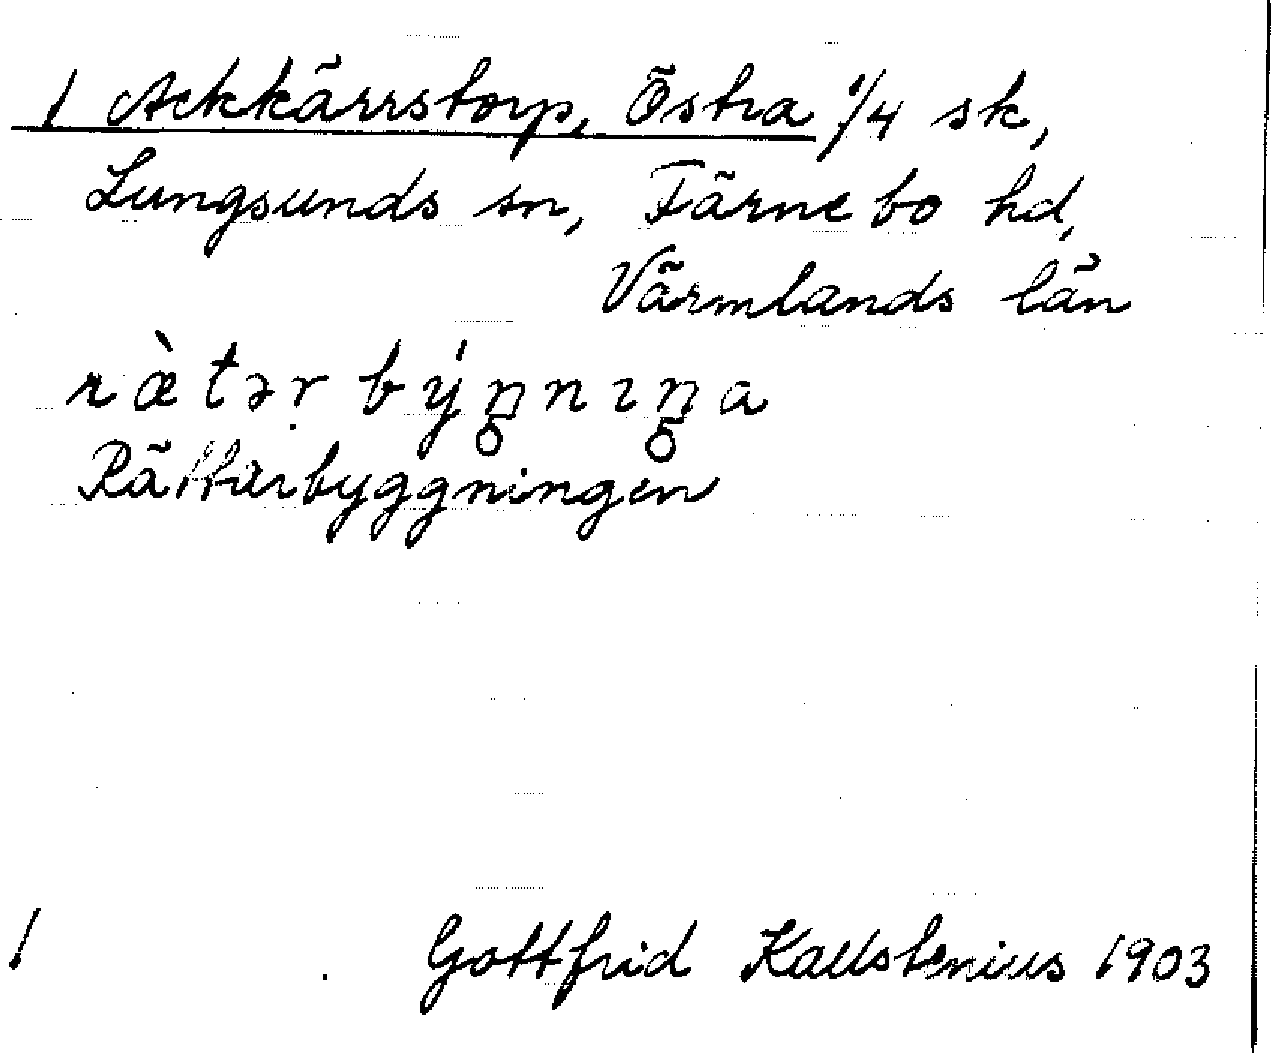 1 Ackkärrstorp, Östra 1/4 sk,
Lungsunds sn, Färnebo hd,
Värmlands län
ræ̀tər býŋnıŋa
Rättarbyggningen
1 Gottfrid Kallstenius 1903